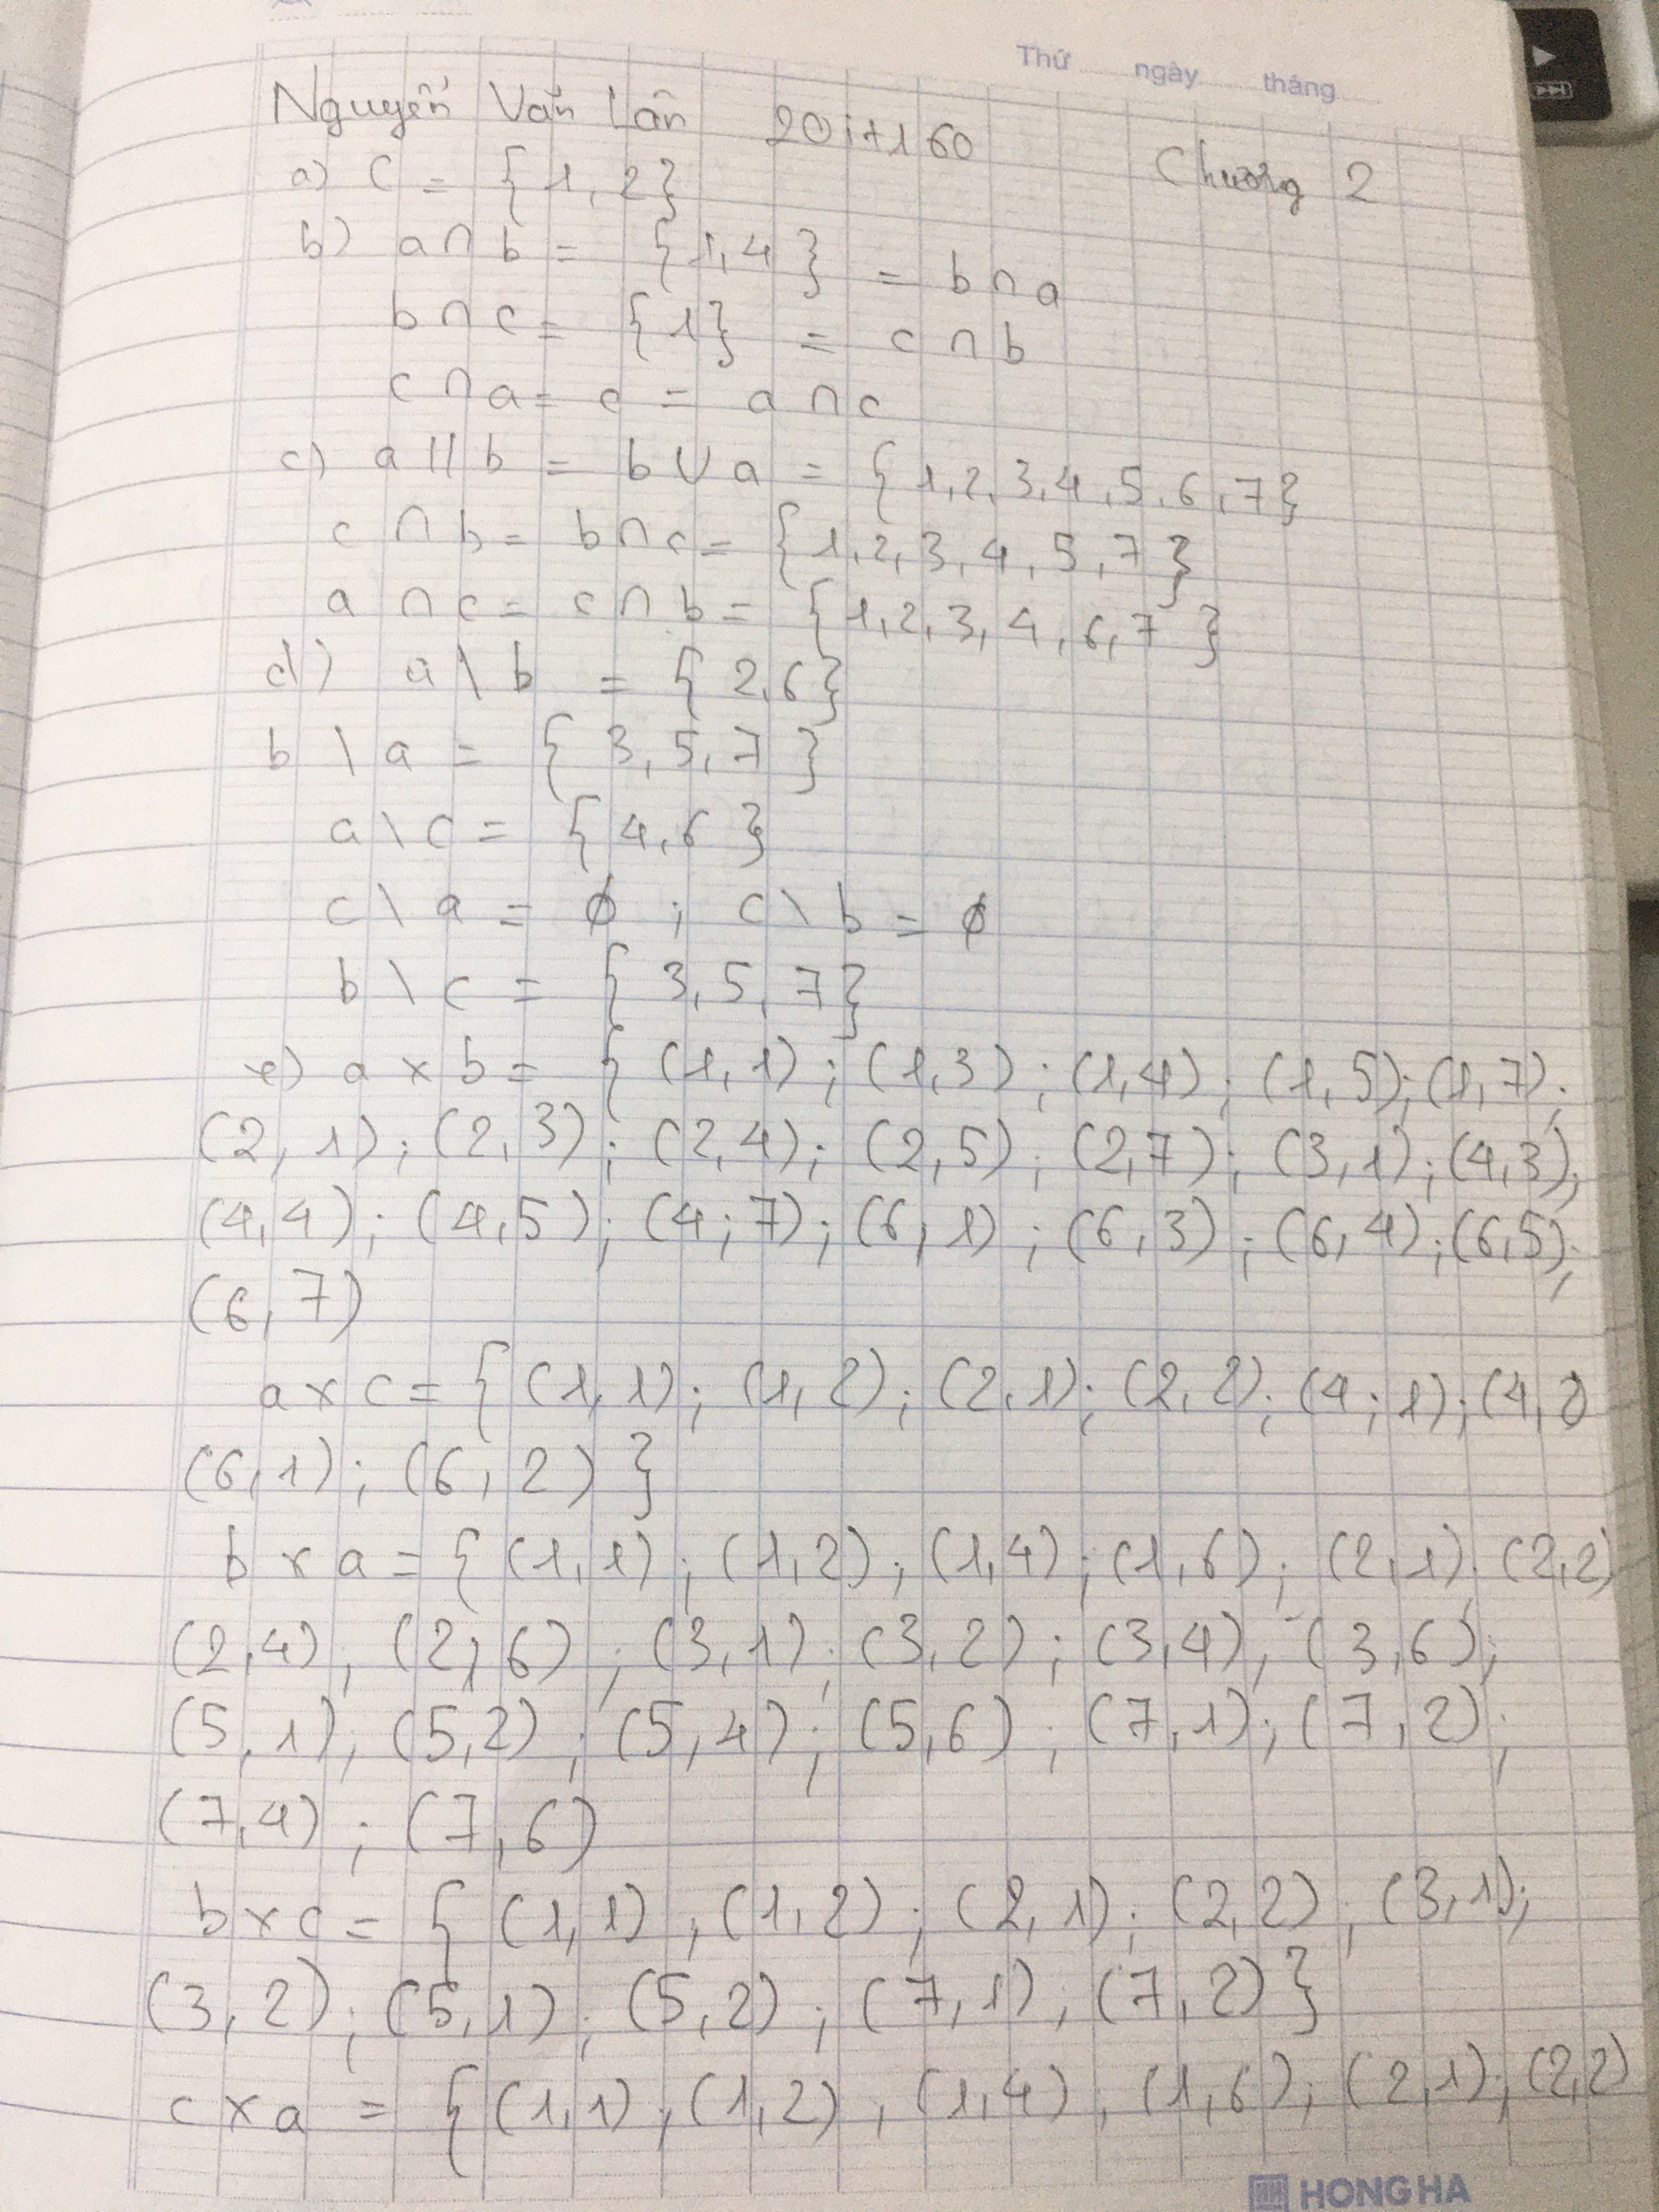 Thứ ngày tháng
Nguyễn Văn Lân 20it160 Chương 2
a) C = {1, 2}
b) a ∩ b = {1, 4} = b ∩ a
b ∩ c = {1} = c ∩ b
c ∩ a = c = a ∩ c
c) a || b = b ∪ a = {1, 2, 3, 4, 5, 6, 7}
c ∩ b = b ∩ c = {1, 2, 3, 4, 5, 7}
a ∩ c = c ∩ b = {1, 2, 3, 4, 6, 7}
d) a \ b = {2, 6}
b \ a = {3, 5, 7}
a \ c = {4, 6}
c \ a = ∅ ; c \ b = ∅
b \ c = {3, 5, 7}
e) a × b = { (1, 1) ; (1, 3) ; (1, 4) ; (1, 5) ; (1, 7) ;
(2, 1) ; (2, 3) ; (2, 4) ; (2, 5) ; (2, 7) ; (3, 1) ; (4, 3) ;
(4, 4) ; (4, 5) ; (4 ; 7) ; (6, 1) ; (6, 3) ; (6, 4) ; (6, 5) ;
(6, 7)
a × c = { (1, 1) ; (1, 2) ; (2, 1) ; (2, 2) ; (4 ; 1) ; (4, 2)
(6, 1) ; (6, 2) }
b × a = { (1, 1) ; (1, 2) ; (1, 4) ; (1, 6) ; (2, 1) ; (2, 2)
(2, 4) , (2, 6) ; (3, 1) ; (3, 2) ; (3, 4) , (3, 6) ;
(5, 1) , (5, 2) ; (5, 4) ; (5, 6) ; (7, 1) ; (7, 2) ;
(7, 4) ; (7, 6)
b × c = { (1, 1) , (1, 2) ; (2, 1) ; (2, 2) , (3, 1) ;
(3, 2) ; (5, 1) ; (5, 2) ; (7, 1) , (7, 2) }
c × a = { (1, 1) , (1, 2) , (1, 4) , (1, 6) ; (2, 1) ; (2, 2)
HONG HA